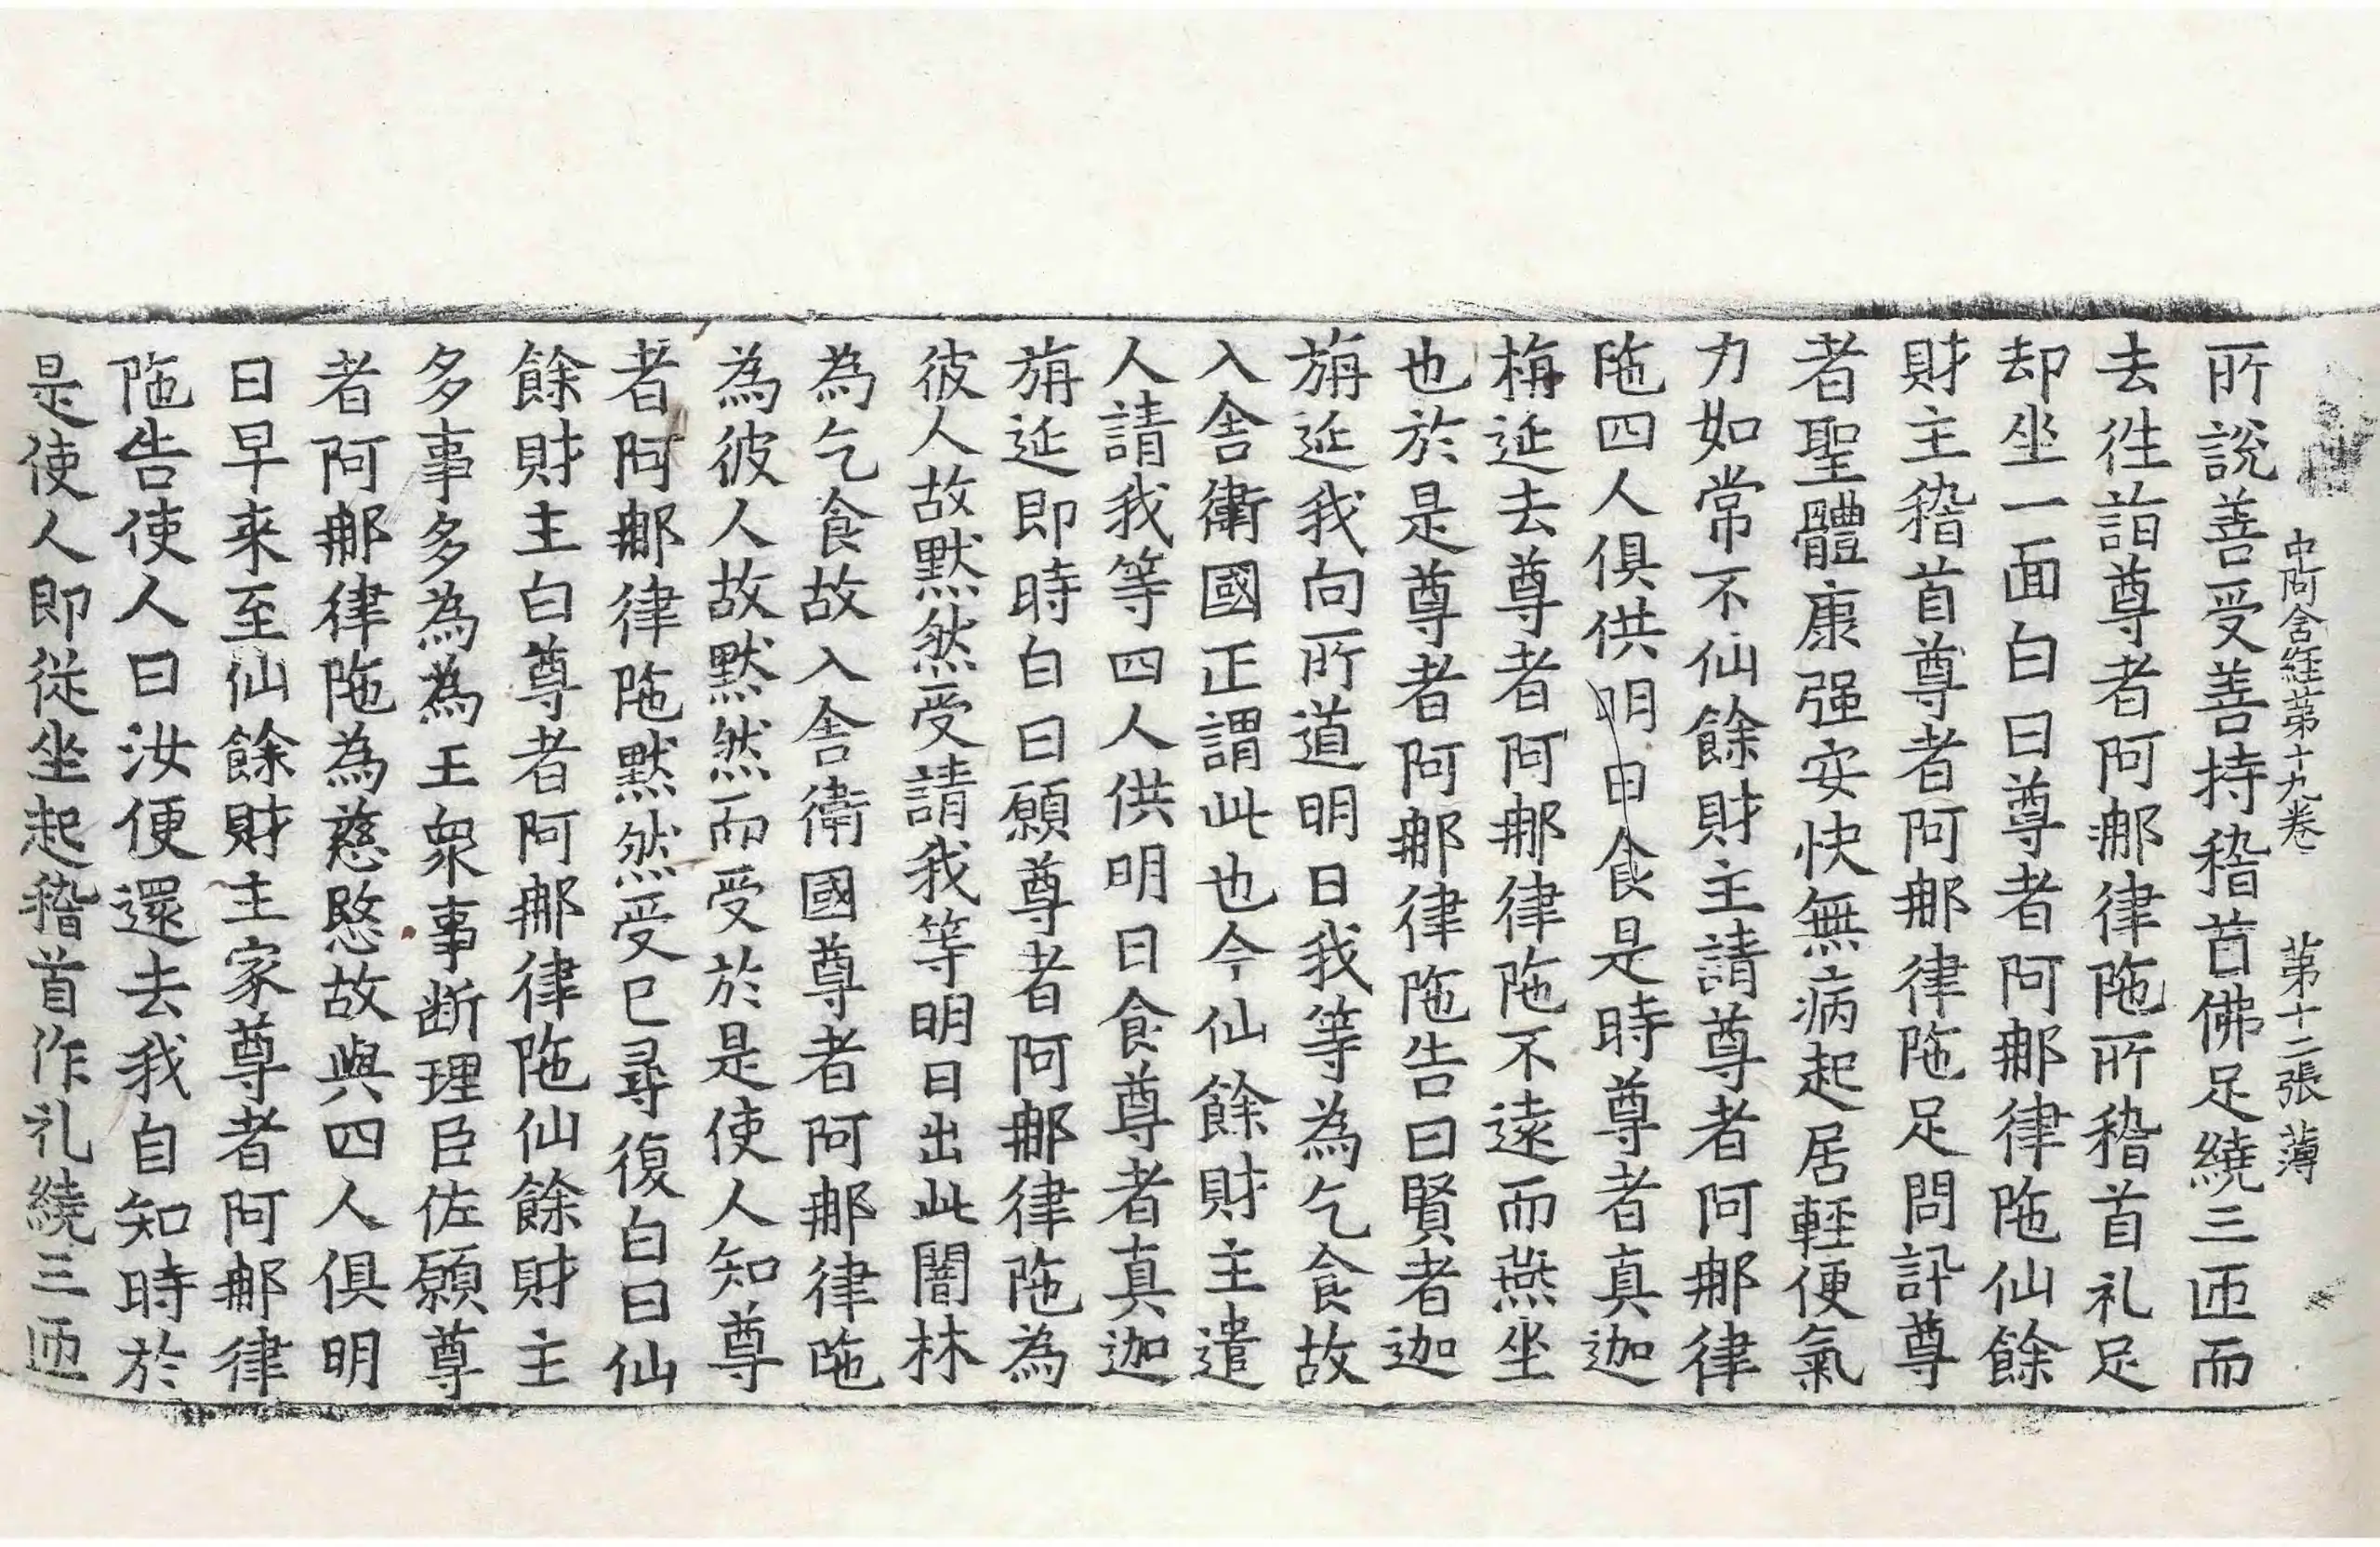 中阿含經第十九卷 第十二張 薄
所說善受善持稽首佛足繞三匝而
去徃詣尊者阿那律陁所稽首礼足
却坐一面白曰尊者阿那律陁仙餘
財主稽首尊者阿那律陁足問訊尊
者聖體康强安快無病起居輕便氣
力如常不仙餘財主請尊者阿那律
陁四人俱供明日食是時尊者真迦
栴延去尊者阿那律陁不遠而燕坐
也於是尊者阿那律陁告曰賢者迦
旃延我向所道明日我等為乞食故
入舍衛國正謂此也今仙餘財主遣
人請我等四人供明日食尊者真迦
旃延即時白曰願尊者阿那律陁為
彼人故默然受請我等明日出此闇林
為乞食故入舍衛國尊者阿那律陁
為彼人故默然而受於是使人知尊
者阿那律陁默然受已尋復白曰仙
餘財主白尊者阿那律陁仙餘財主
多事多為為王衆事断理臣佐願尊
者阿那律陁為慈愍故與四人俱明
日早来至仙餘財主家尊者阿那律
陁告使人曰汝便還去我自知時於
是使人即従坐起稽首作礼繞三匝